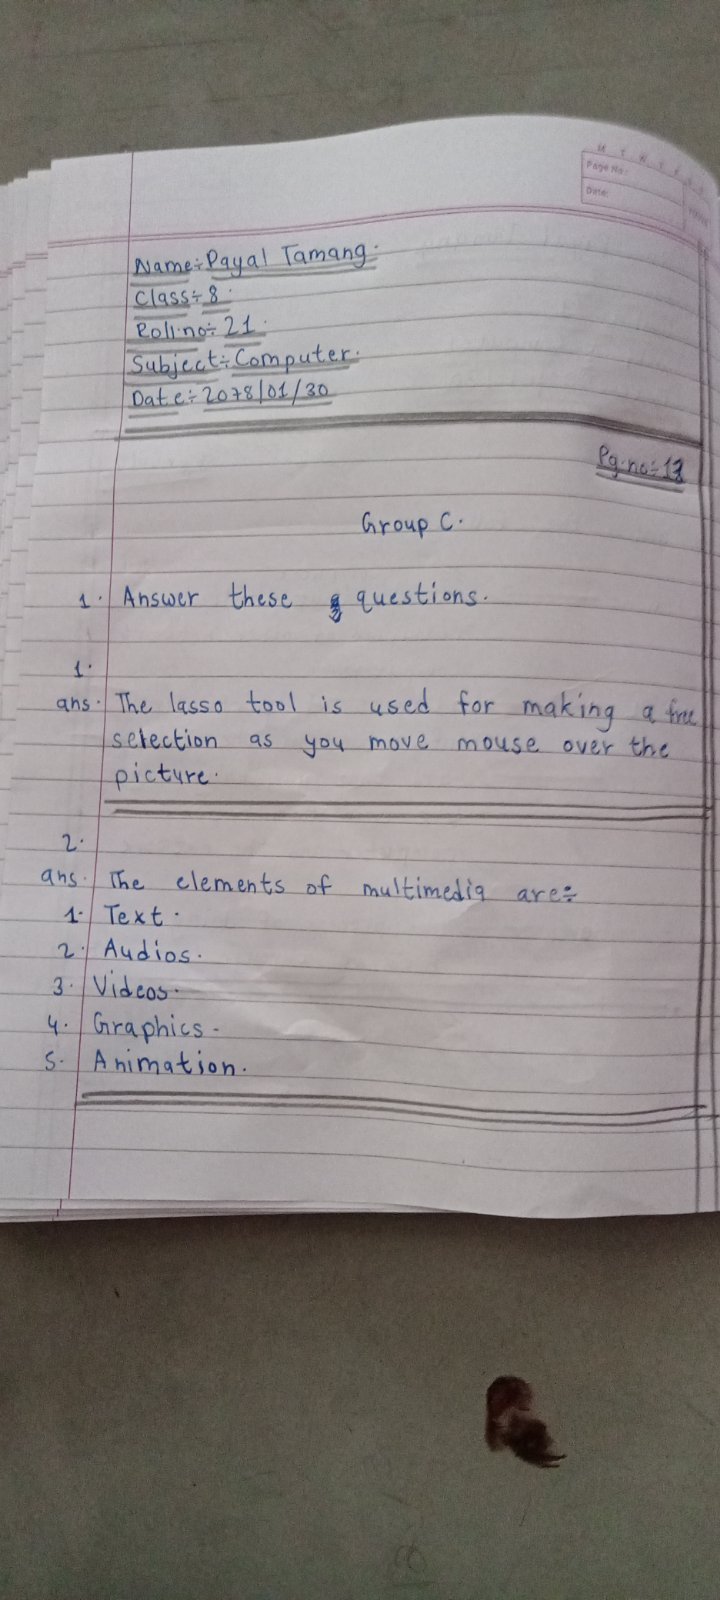 M T W T F S S
Page No.:
Date:
Name÷Payal Tamang.
Class÷8.
Roll.no÷21.
Subject÷Computer.
Date÷2078/01/30
Pg.no÷
Group C.
1. Answer these questions.
1.
ans. The lasso tool is used for making a free
selection as you move mouse over the
picture.
2.
ans. The elements of multimedia are÷
1. Text.
2. Audios.
3. Videos.
4. Graphics.
5. Animation.